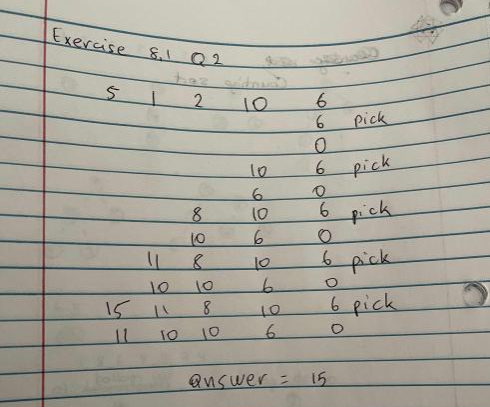 Exercise 8.1 Q2
5 1 2 10 6
6 pick
0
10 6 pick
6 0
8 10 6 pick
10 6 0
11 8 10 6 pick
10 10 6 0
15 11 8 10 6 pick
11 10 10 6 0
answer = 15